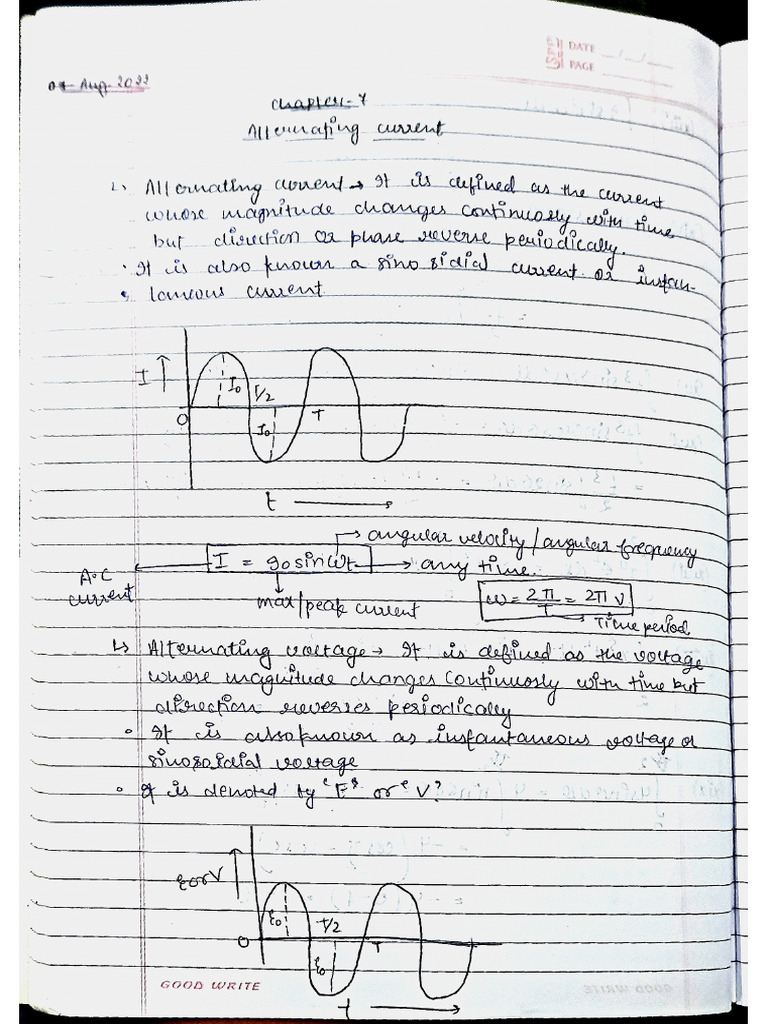 DATE
PAGE
Aug 2022
Chapter-7
Alternating current
↳ Alternating current → It is defined as the current
whose magnitude changes continuosly with time
but direction or phase reverse periodically.
• It is also known a sino sidial current or instan-
taneous current
I ↑ I₀ T/2
O I₀ T
t →
→ angular velocity/angular frequency
A.C current ← I = I₀ sin ωt → any time.
↓ max/peak current
ω = 2π/T = 2πν
→ Time period
↳ Alternating voltage → It is defined as the voltage
whose magnitude changes continuosly with time but
direction reverses periodically
• It is also known as instantaneous voltage or
sinosoidial voltage
• It is denoted by 'E' or 'V'
E or V ↑ E₀ T/2
O E₀ T
t →
GOOD WRITE